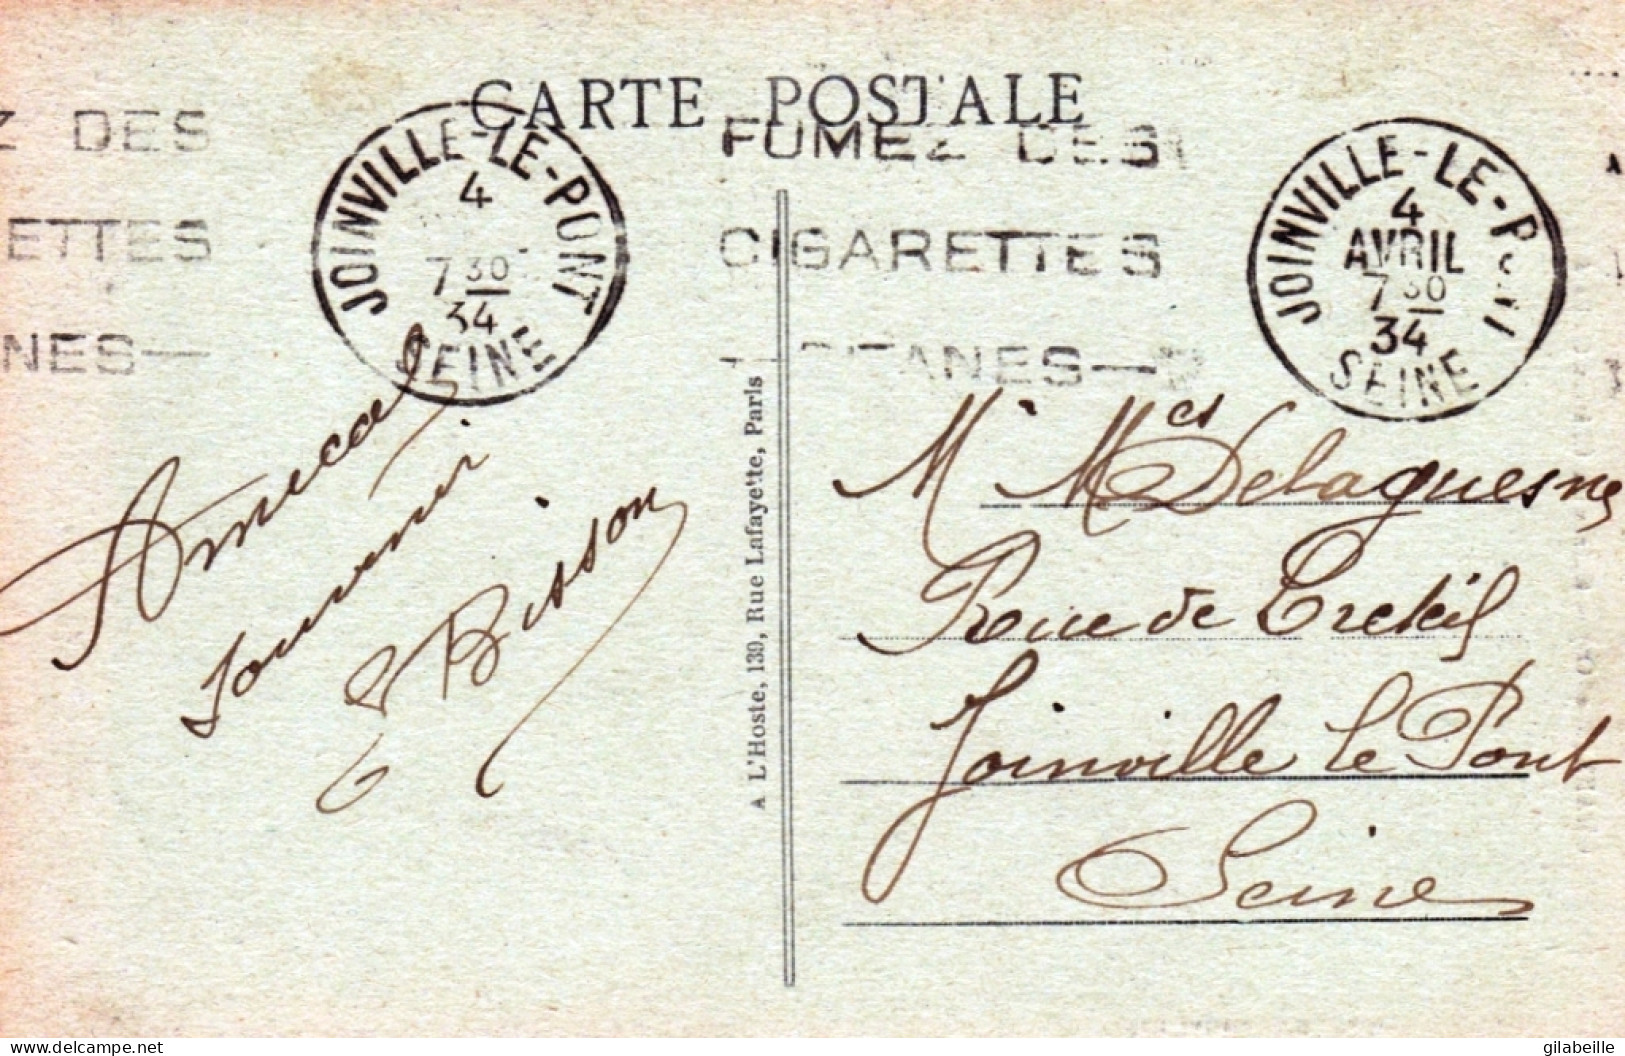 CARTE POSTALE
Z DES
ETTES
NES—
JOINVILLE-LE-PONT
4
7 30
34
SEINE
FUMEZ DES
CIGARETTES
GITANES—
JOINVILLE-LE-PONT
4
AVRIL
7 30
34
SEINE
Amical
souvenir
Bisson
A L'Hoste, 139, Rue Lafayette, Paris
Mr Mes Delaquesne
Rue de Creteil
Joinville le Pont
Seine
delcampe.net
gilabeille